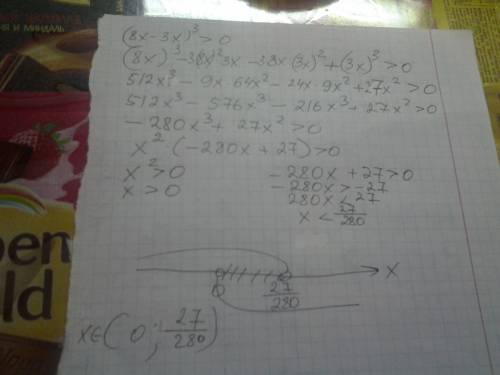 И МИНДАЛЬ
(8x-3x)³>0
(8x)³-3(8x)²3x-38x(3x)²+(3x)³>0
512x³-9x·64x²-24x·9x²+27x²>0
512x³-576x³-216x³+27x²>0
-280x³+27x²>0
x²·(-280x+27)>0
x²>0 -280x+27>0
x>0 -280x>-27
280x<27
x<27/280
x
0 27/280
x∈(0; 27/280)
pen
ld